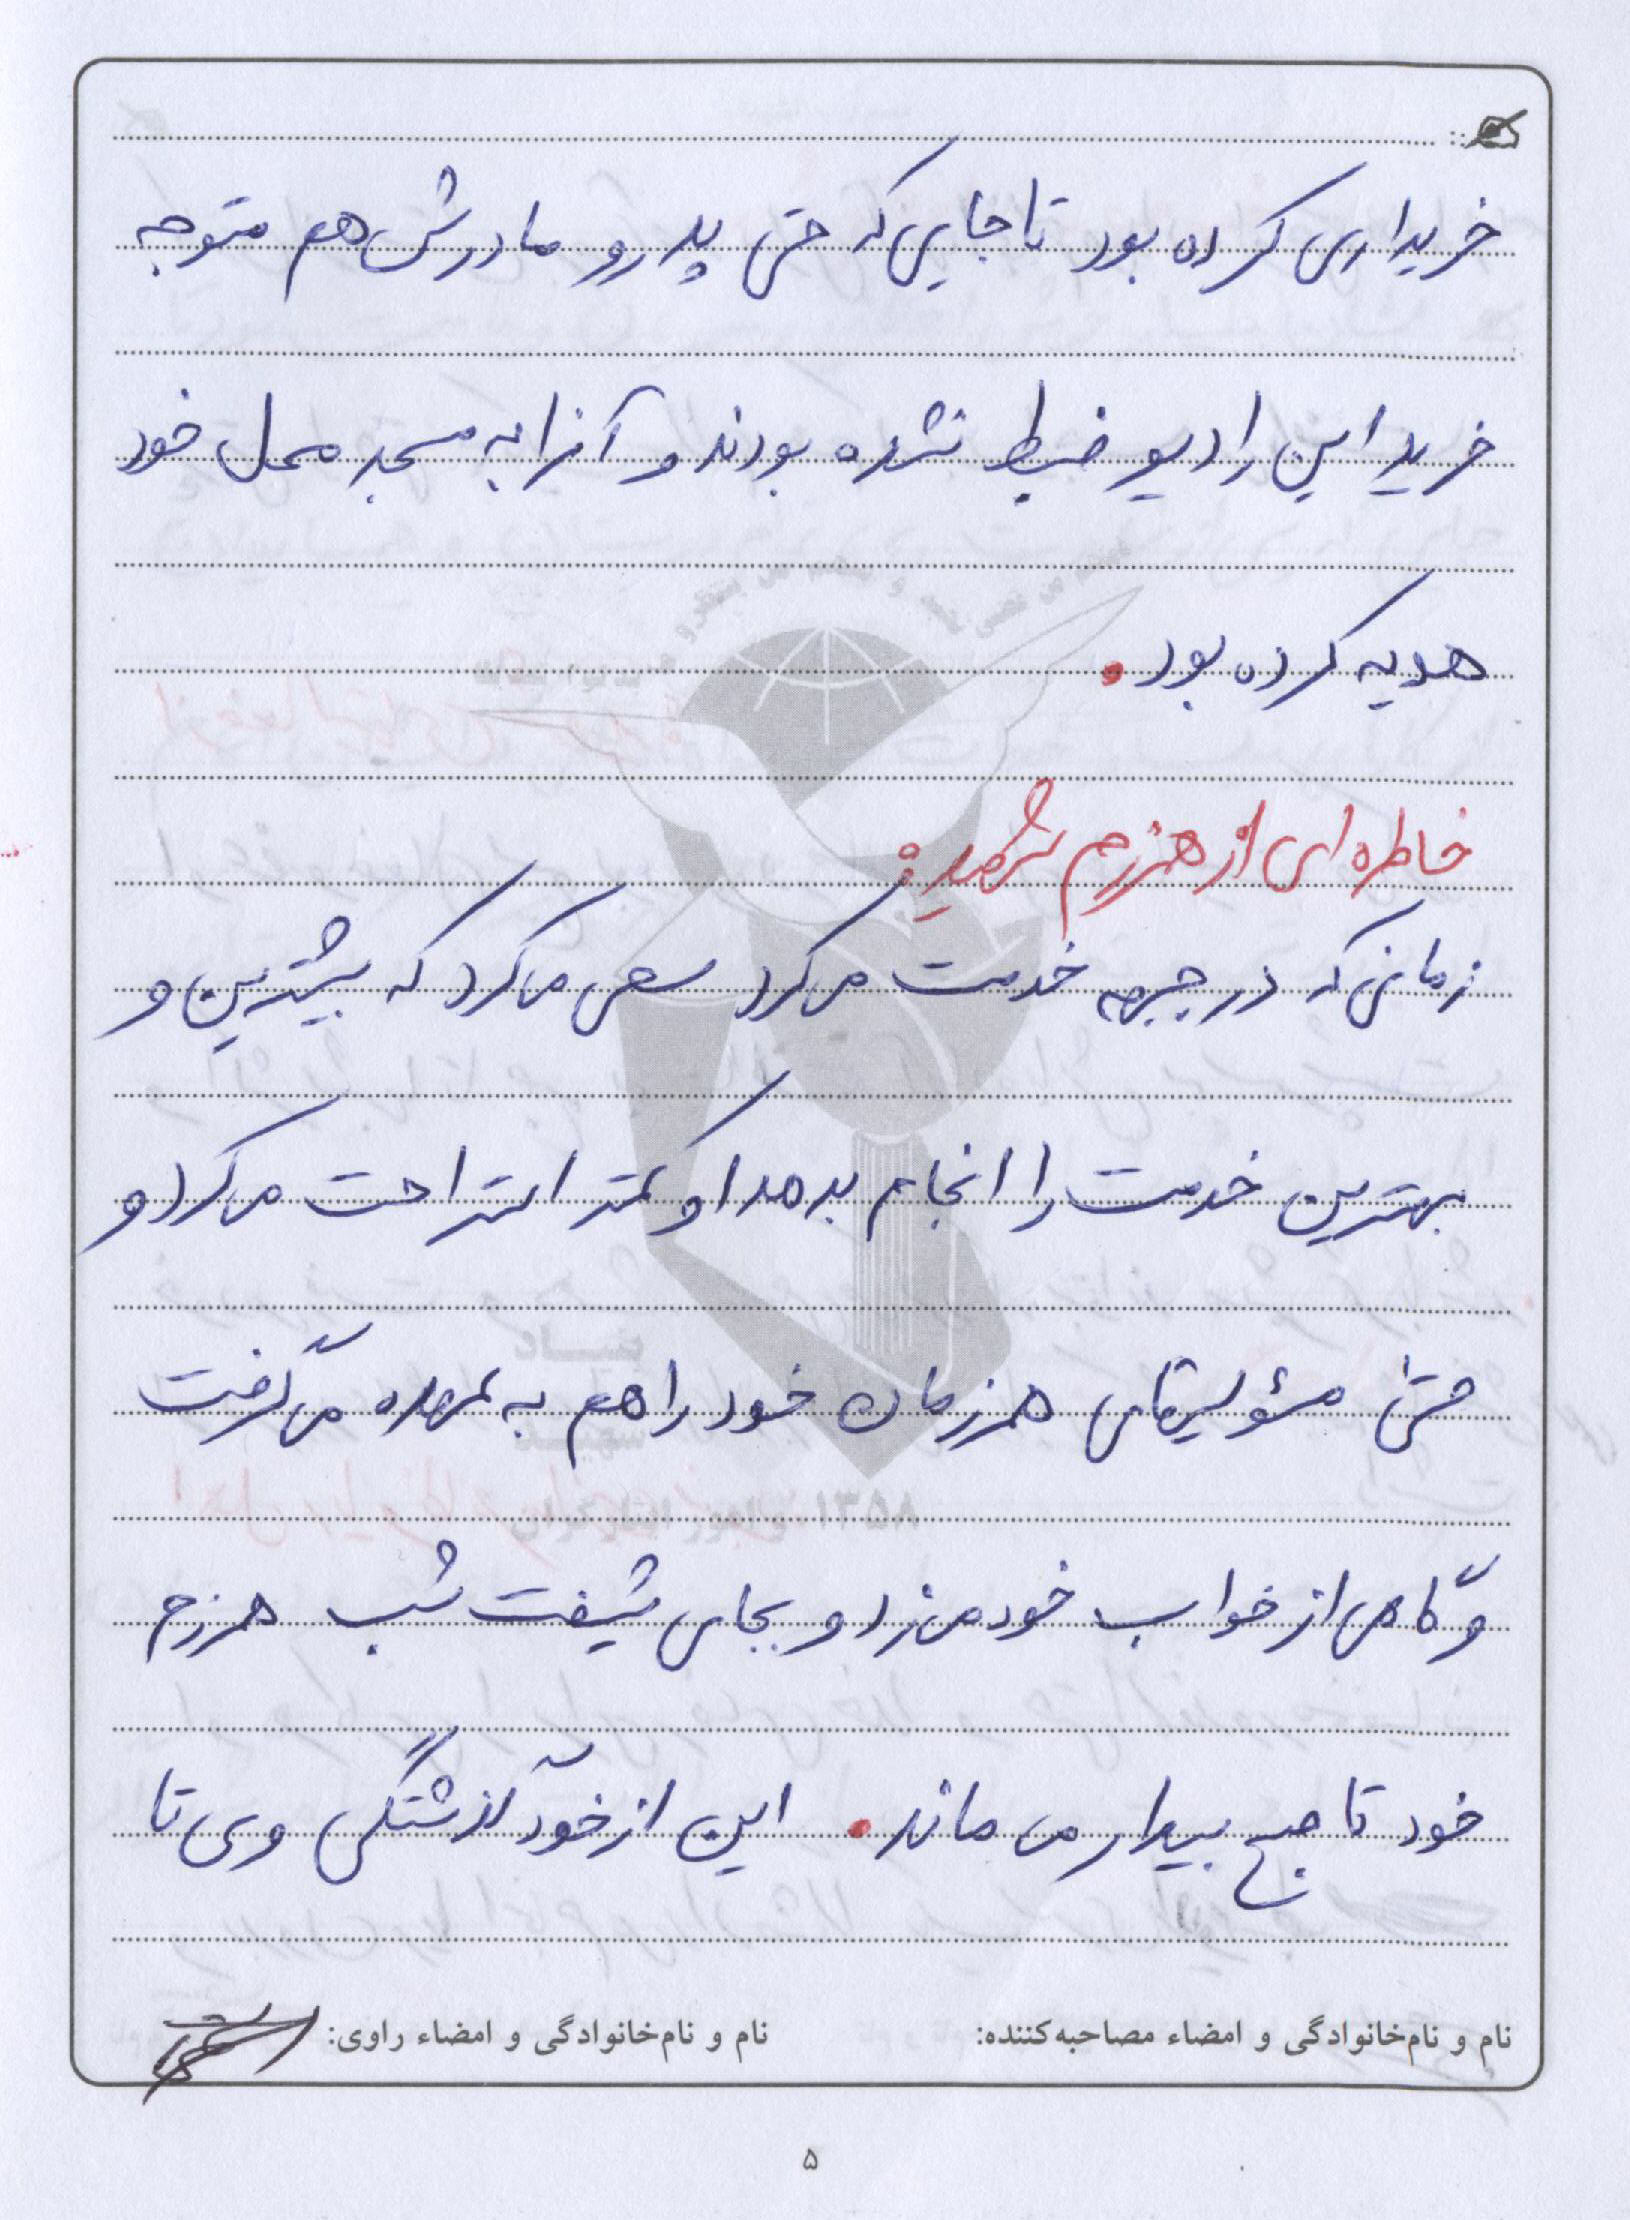 خریداری کرده بود تا جایی که حتی پدر و مادرش هم متوجه
خرید این رادیو ضبط نشده بودند و آنرا به مسجد محل خود
هدیه کرده بود.
خاطره ای از همرزم شهید:
زمانی که در جبهه خدمت می کرد سعی می کرد که بیشترین و
بهترین خدمت را انجام بدهد او کمتر استراحت می کرد و
حتی مسؤلیتهای همرزمان خود را هم به عهده می گرفت
و گاهی از خواب خود می زد و بجای شیفت شب همرزم
خود تا صبح بیدار می ماند. این از خود گذشتگی وی تا
نام و نام‌خانوادگی و امضاء مصاحبه‌کننده:
نام و نام‌خانوادگی و امضاء راوی:
۵